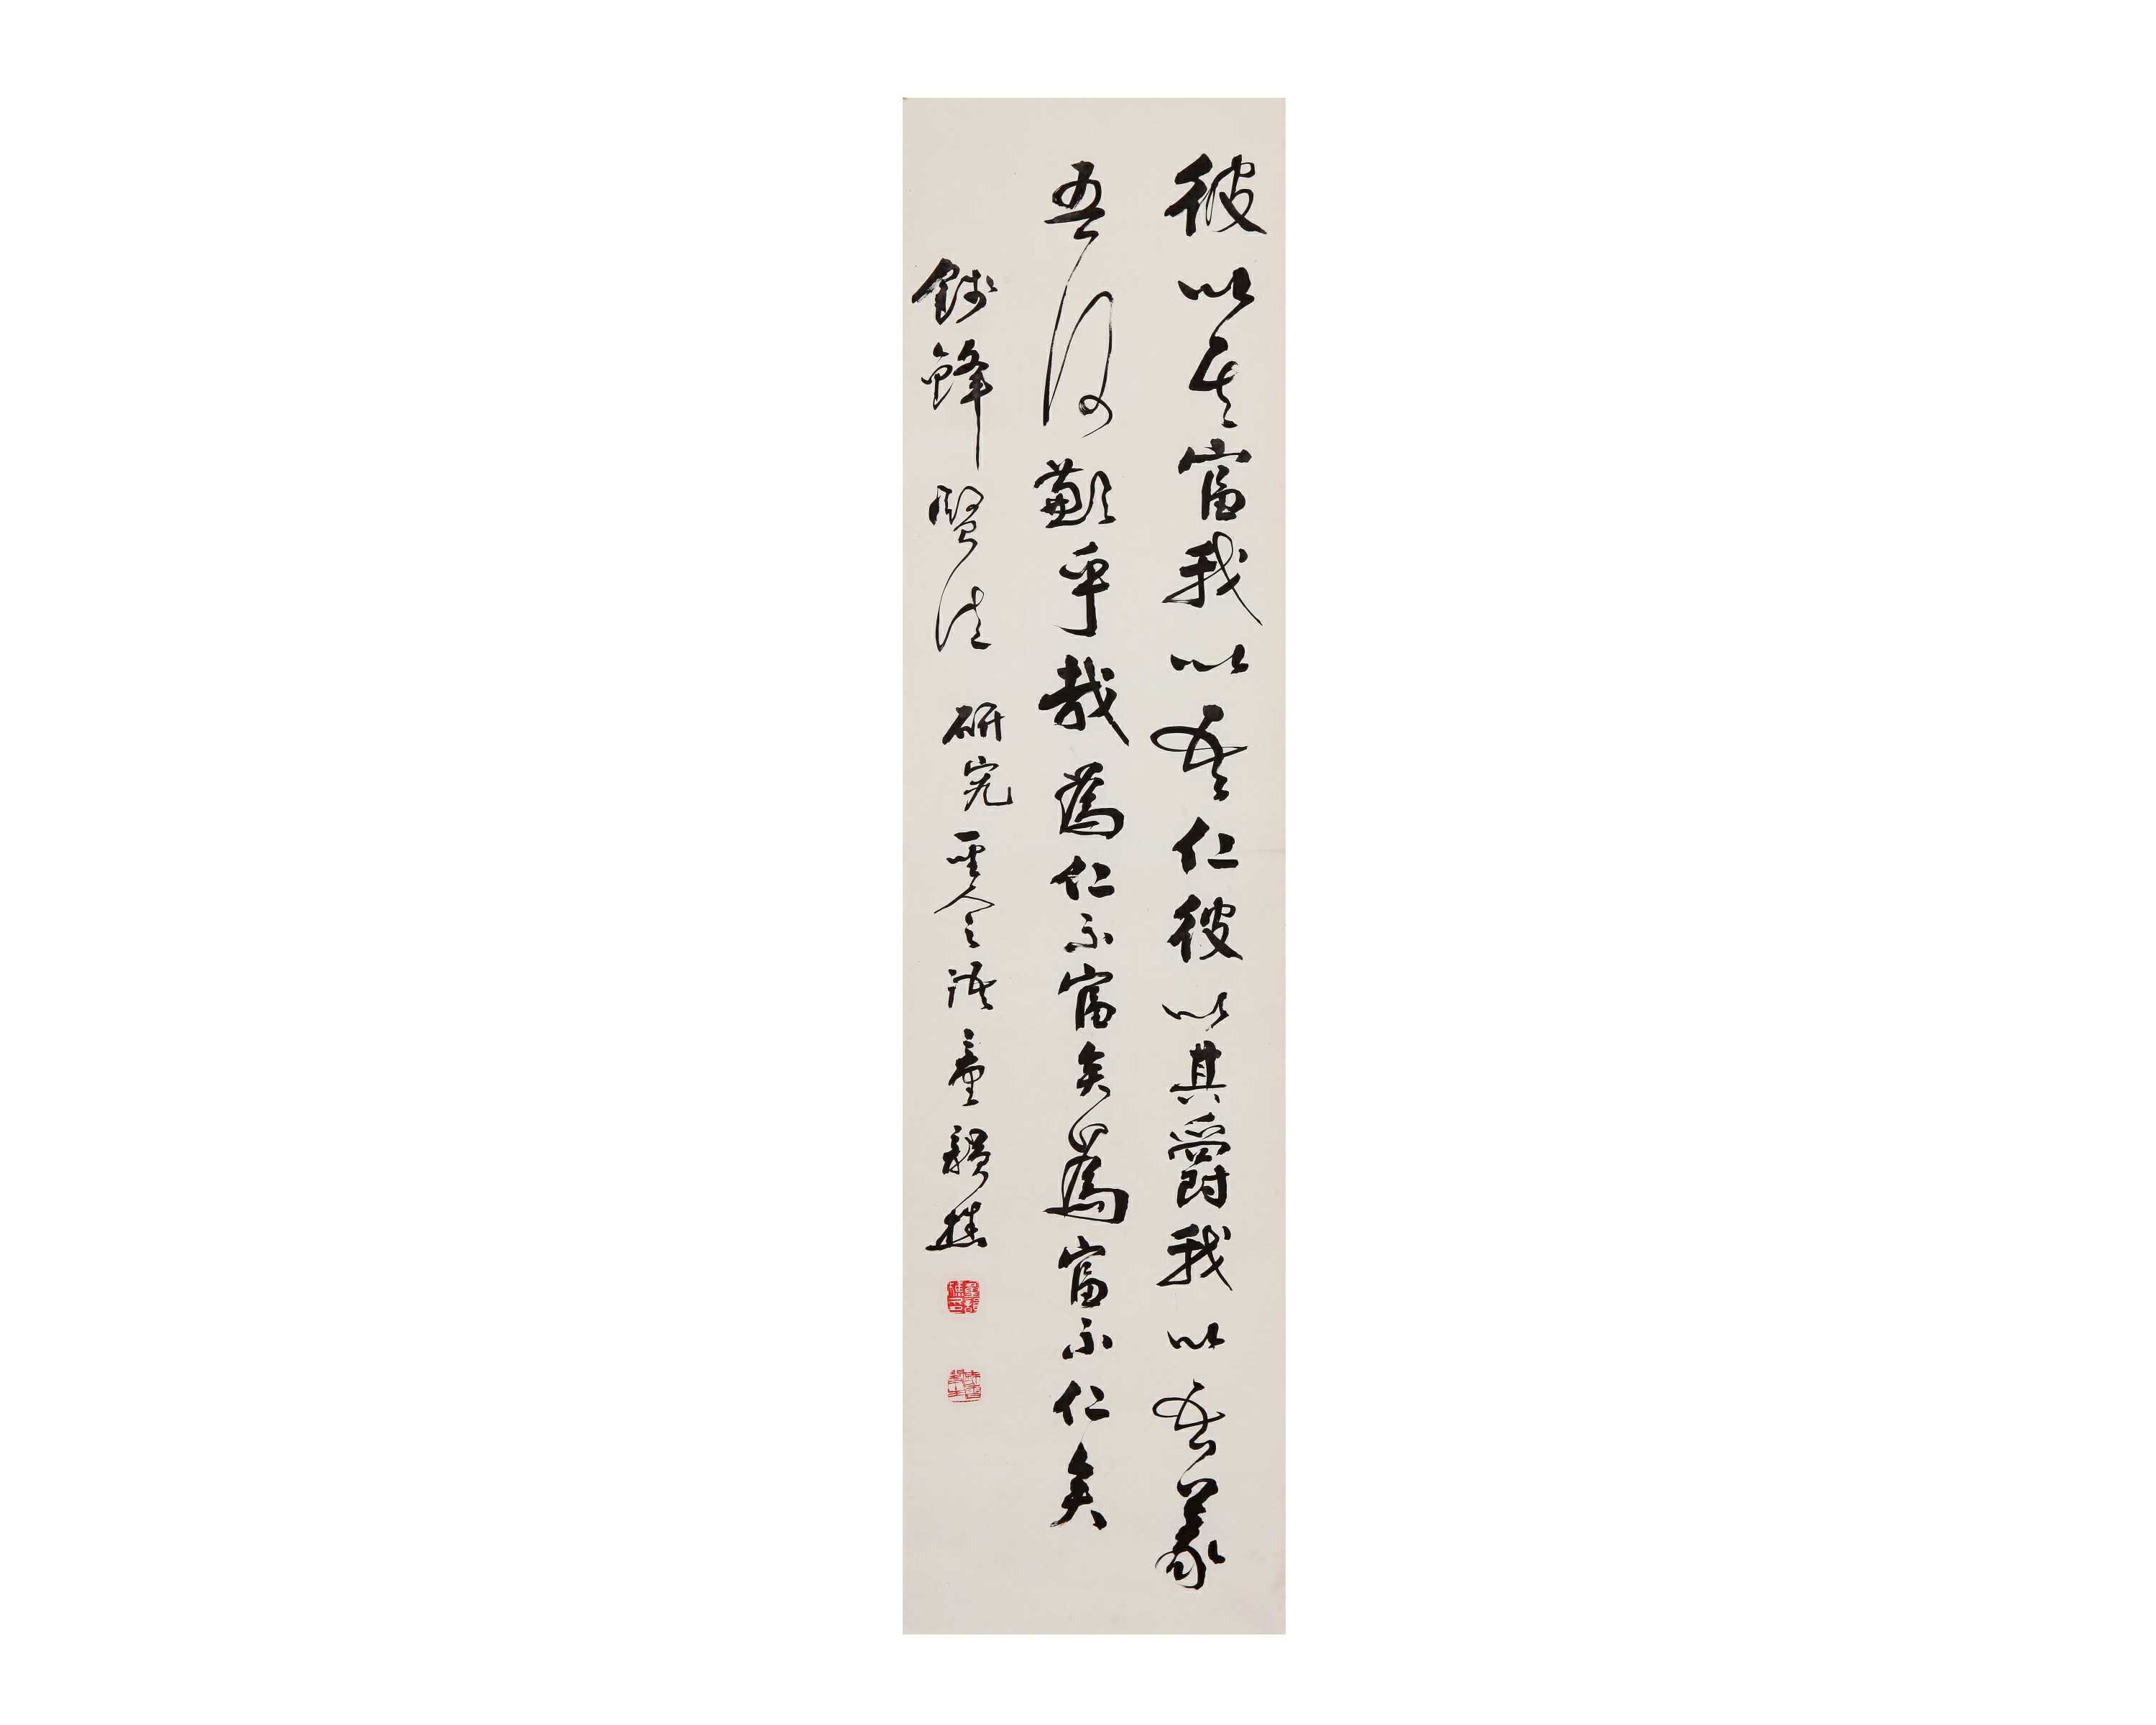 彼以其富我以吾仁彼以其爵我以吾義
吾何歉乎哉為仁不富矣為富不仁矣
鋒賢 研究聖人之語